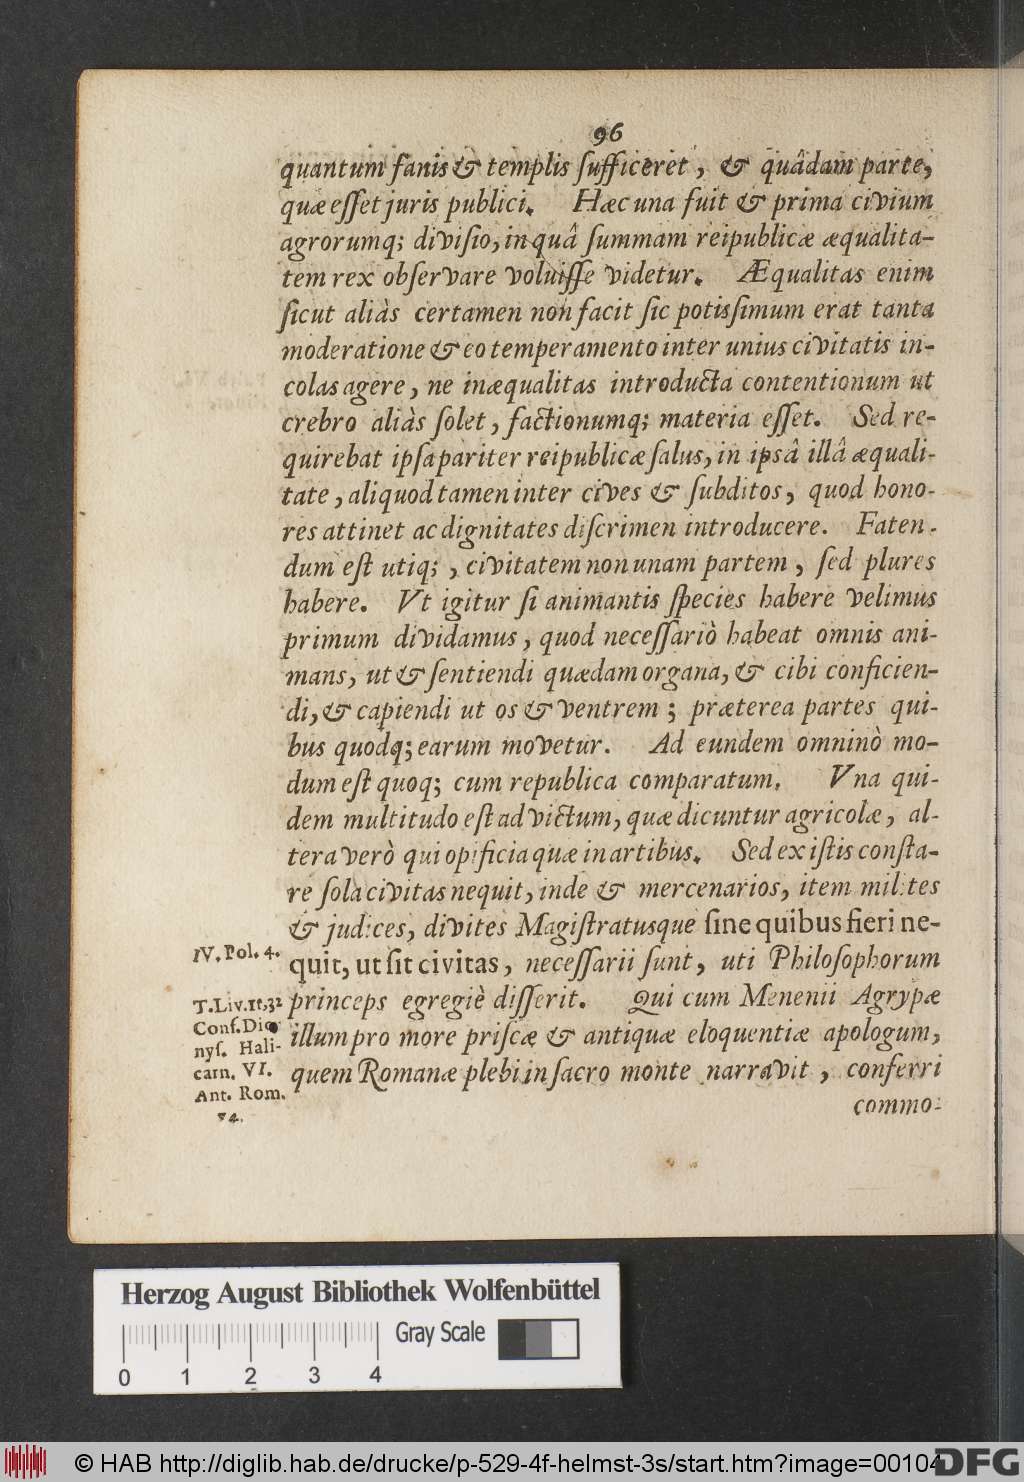 96
quantum fanis & templis ſufficeret, & quâdam parte,
quæ eſſet juris publici. Hæc una fuit & prima civium
agrorumq; diviſio, in quâ ſummam reipublicæ æqualita-
tem rex obſervare voluiſſe videtur. Æqualitas enim
ſicut aliàs certamen non facit ſic potisſimum erat tanta
moderatione & eo temperamento inter unius civitatis in-
colas agere, ne inæqualitas introducta contentionum ut
crebro aliàs ſolet, factionumq; materia eſſet. Sed re-
quirebat ipſa pariter reipublicæ ſalus, in ipsâ illâ æquali-
tate, aliquod tamen inter cives & ſubditos, quod hono-
res attinet ac dignitates diſcrimen introducere. Faten-
dum eſt utiq;, civitatem non unam partem, ſed plures
habere. Vt igitur ſi animantis ſpecies habere velimus
primum dividamus, quod neceſſariò habeat omnis ani-
mans, ut & ſentiendi quædam organa, & cibi conficien-
di, & capiendi ut os & ventrem; præterea partes qui-
bus quodq; earum movetur. Ad eundem omninò mo-
dum eſt quoq; cum republica comparatum. Vna qui-
dem multitudo eſt ad victum, quæ dicuntur agricolæ, al-
tera verò qui opificia quæ in artibus. Sed ex iſtis conſta-
re ſola civitas nequit, inde & mercenarios, item milites
& judices, divites Magiſtratusque ſine quibus fieri ne-
IV. Pol. 4.
quit, ut ſit civitas, neceſſarii ſunt, uti Philoſophorum
T. Liv. II, 32
princeps egregiè diſſerit. Qui cum Menenii Agrypæ
Conf. Dio
illum pro more priſcæ & antiquæ eloquentiæ apologum,
nyſ. Hali-
carn. VI.
quem Romanæ plebi in ſacro monte narravit, conferri
Ant. Rom.
commo-
Herzog August Bibliothek Wolfenbüttel
Gray Scale
0 1 2 3 4
© HAB http://diglib.hab.de/drucke/p-529-4f-helmst-3s/start.htm?image=00104
DFG